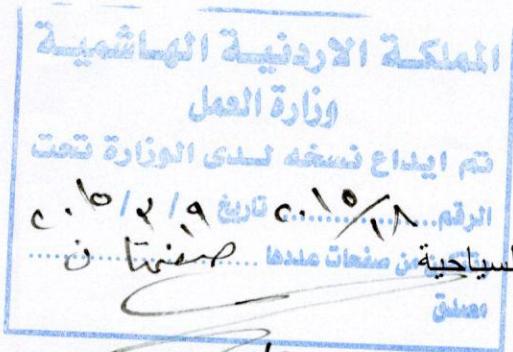 المملكة الاردنية الهاشمية
وزارة العمل
تم ايداع نسخه لدى الوزارة تحت
الرقم ٢٠١٥/١٨ تاريخ ٩/٣/٢٠١٥
من صفحات عددها صفحتان
السياحية
مصدق